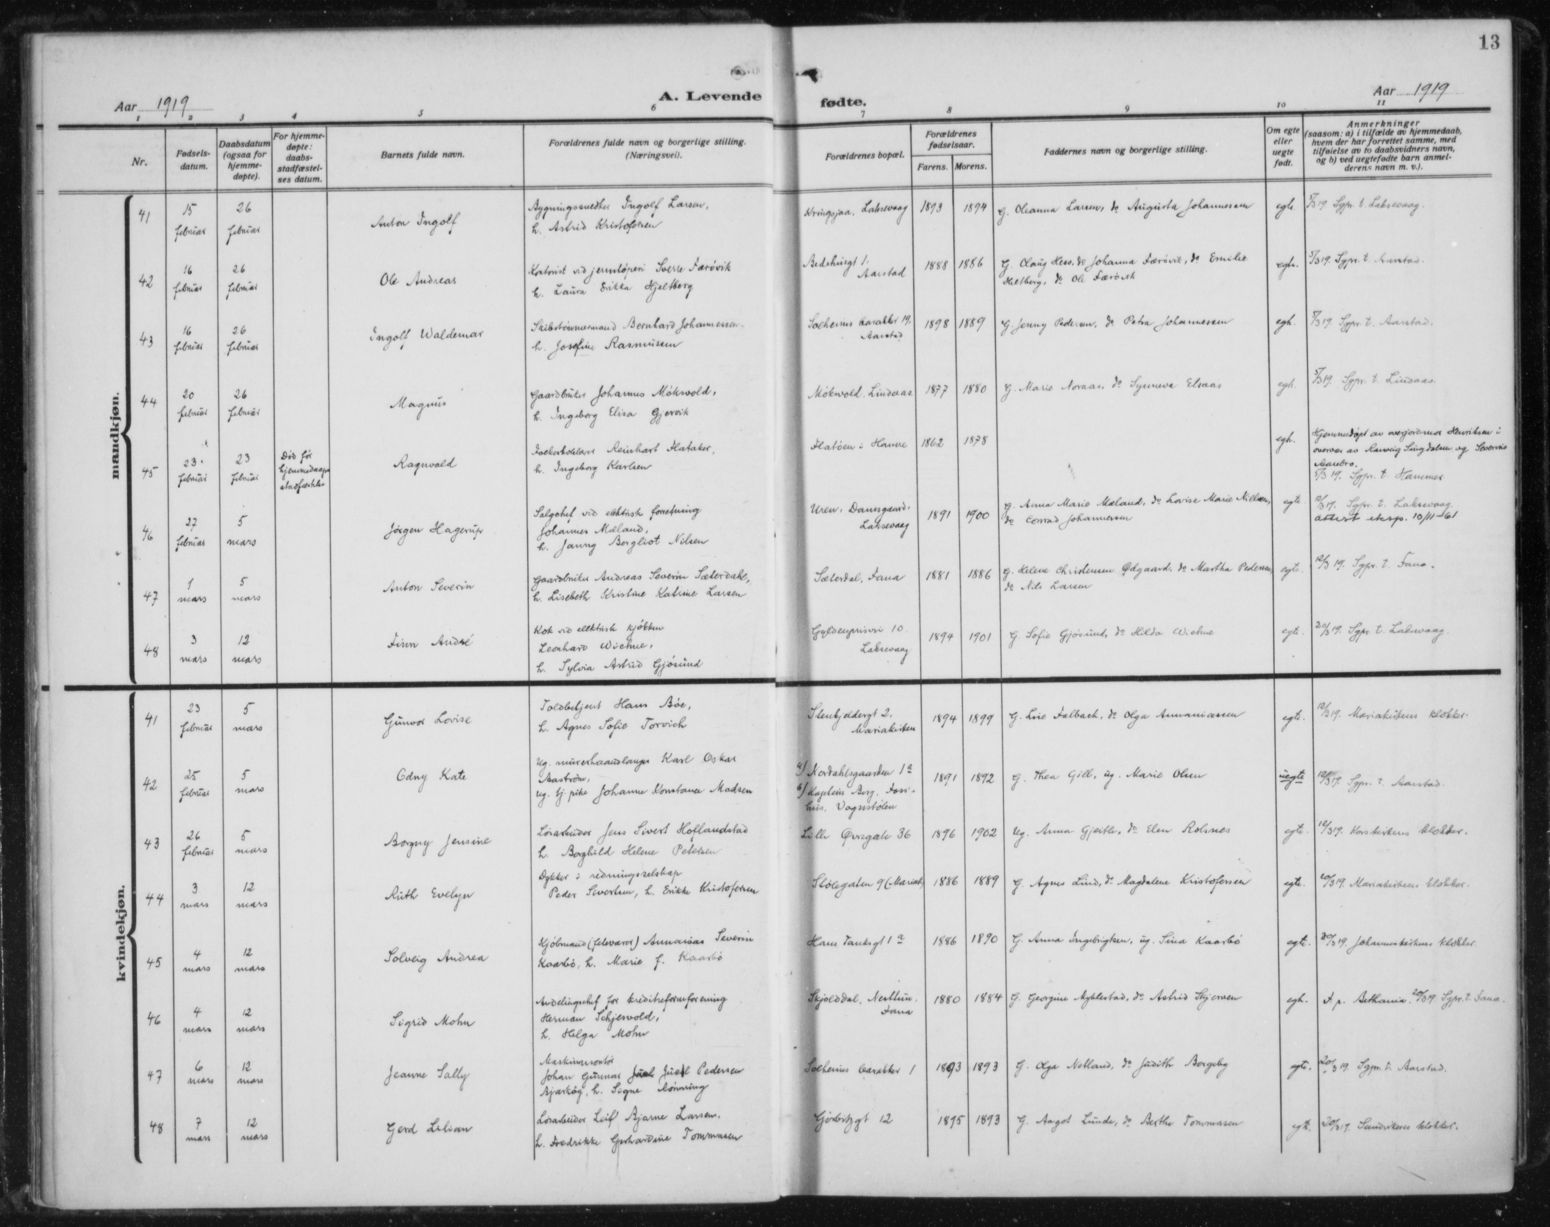 13
Aar 1919
A. Levende
fødte.
Aar 1919
1 2 3 4 5 6 7 8 9 10 11
Nr.
Fødsels-
datum.
Daabsdatum
(ogsaa for
hjemme-
døpte).
For hjemme-
døpte:
daabs-
stadfæstel-
ses datum.
Barnets fulde navn.
Forældrenes fulde navn og borgerlige stilling.
(Næringsvei).
Forældrenes bopæl.
Forældrenes
fødselsaar.
Farens. Morens.
Faddernes navn og borgerlige stilling.
Om egte
eller
uegte
født.
Anmerkninger
(saasom: a) i tilfælde av hjemmedaab,
hvem der har forrettet samme, med
tilføielse av to daabsvidners navn,
og b) ved uegtefødte barn anmel-
derens navn m. v.).
mandkjøn.
41
15
februar
26
februar
Anton Ingolf
Bygningssnedker Ingolf Larsen,
h. Astrid Kristofersen
Kringsjaa, Laksevaag
1893 1894
G. Oleanna Larsen, do Augusta Johannesen
egte.
5/3 19. Sgpr. t. Laksevaag.
42
16
februar
26
februar
Ole Andreas
Kontorist ved jernstøperi Sverre Færøvik
h. Laura Erikka Hjeltberg
Aarstad
1888 1886
G. Olaug Hess, do Johanna Færøvik, do Emilie
Heltberg, do Ole Færøvik
egte.
5/3 19. Sgpr. t. Aarstad.
43
16
februar
26
februar
Ingolf Waldemar
Skibstømmermand Bernhard Johannessen
h. Josefine Rasmussen
Solheims Karakter 19,
Aarstad
1898 1889
G. Jenny Pedersen, do Petra Johannesen
egte.
5/3 19. Sgpr. t. Aarstad.
44
20
februar
26
februar
Magnus
Gaardbruker Johannes Mökwold,
h. Ingeborg Elisa Gjervik
Mökwold. Lindaas
1877 1880
G. Marie Noraas, do Synneva Elsaas
egte.
5/3 19. Sgpr. t. Lindaas.
45
23
februar
23
februar
Død før
hjemmedaaps
stadfæstelse
Ragnvald
Reinhart Flatøker,
h. Ingeborg Karlsen
Flatöen i Hamre
1862 1878
egte.
Hjemmedøpt av overjordmor Henriksen i
5/3 19. Sgpr. t. Hammer
46
27
februar
5
mars
Jørgen Hagerup
Salgschef ved elektrisk forretning
Johannes Mæland,
h. Janny Bergliot Nilsen
Uren, Damsgaard,
Laksevaag
1891 1900
G. Anna Marie Mæland, do Lovise Marie Nilsen,
do Conrad Johannesen
egte
12/3 19. Sgpr. t. Laksevaag
Attest eksp. 10/11-61
47
1
mars
5
mars
Anton Severin
Gaardbruker Andreas Severin Sæterdal,
h. Lisebeth Kristine Katrine Larsen
Sæterdal, Fana
1881 1886
G. Helene Christensen Ødgaard, do Martha Pedersen
do Nils Larsen
egte.
12/3 19. Sgpr. t. Fana.
48
3
mars
12
mars
Finn André
Kok ved elektrisk kjøkken
Leonhard Wiehne,
h. Sylvia Astrid Gjøsund
Gyldenprisvei 10.
Laksevaag
1894 1901
G. Sofie Gjøsund, do Hilda Wiehne
egte.
20/3 19. Sgpr. t. Laksevaag.
kvindekjøn.
41
23
februar
5
mars
Gunvor Lovise
Toldbetjent Hans Bøe,
h. Agnes Sofie Torvich
Stenkjeldergt 2.
Mariakirken
1894 1899
G. Lise Falbach, do Olga Ammaniassen
egte.
12/3 19. Mariakirkens klokker.
42
25
februar
5
mars
Odny Kate
Ug. murerhaandlanger Karl Oskar
Aaström,
ug. tj. pike Johanne Konstance Madsen
a) Nordahlsgaarden 1a
1891 1892
G. Thea Gill, ug. Marie Olsen
uegte
12/3 19. Sgpr. t. Aarstad.
43
26
februar
5
mars
Borgny Jensine
Løsarbeider Jens Sivert Hollandstad
h. Borghild Helene Petersen
Lille Øvregate 36
1896 1902
ug. Anna Gjertle, do Elen Rolsnes
egte.
12/3 19. Korskirkens klokker.
44
3
mars
12
mars
Ruth Evelyn
Dykker i redningsselskap
Peder Sivertsen, h. Erikke Kristofersen
Stølegaten 9 (Mariak)
1886 1889
G. Agnes Lund, do Magdalene Kristofersen
egte.
20/3 19. Mariakirkens klokker.
45
4
mars
12
mars
Solveig Andrea
Kjøbmand (fetevarer) Annanias Severin
Kaarbö, h. Marie f. Kaarbö
Hans Tanksgt 1a
1886 1890
G. Anna Ingebrigtsen, ug. Sina Kaarbö
egte.
20/3 19. Johanneskirkens klokker.
46
4
mars
12
mars
Sigrid Mohn
Avdelingschef for kreditreformforening
Herman Schjelvold,
h. Helga Mohn
Skjolddal, Nesttun.
Fana
1880 1884
G. Georgine Myklestad, do Astrid Stjernen
egte.
F. p. Bethania. 20/3 19 Sgpr. t. Fana.
47
6
mars
12
mars
Jeanne Sally
Maskinmontør
Johan Gunnar Juel Pedersen
Bjarkøy, h. Signe Mønning
Solheims Karakter 1
1893 1893
G. Olga Netland, do Judith Borgeby
egte.
20/3 19. Sgpr. t. Aarstad.
48
7
mars
12
mars
Gerd Lilian
Løsarbeider Leif Bjarne Larsen.
h. Fredrikke Gerhardine Tommasen
12
1895 1893
G. Aagot Lunde, do Berthe Tommasen
egte.
20/3 19. Sandvikens klokker.